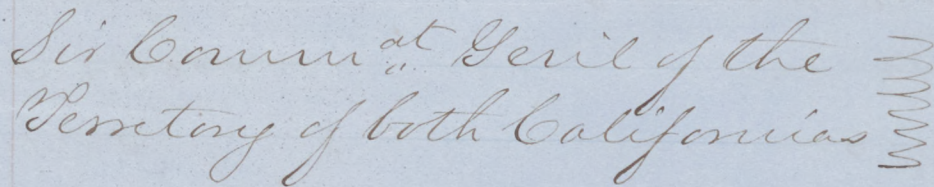 Sir Commat Genl of the
Territory of both Californias